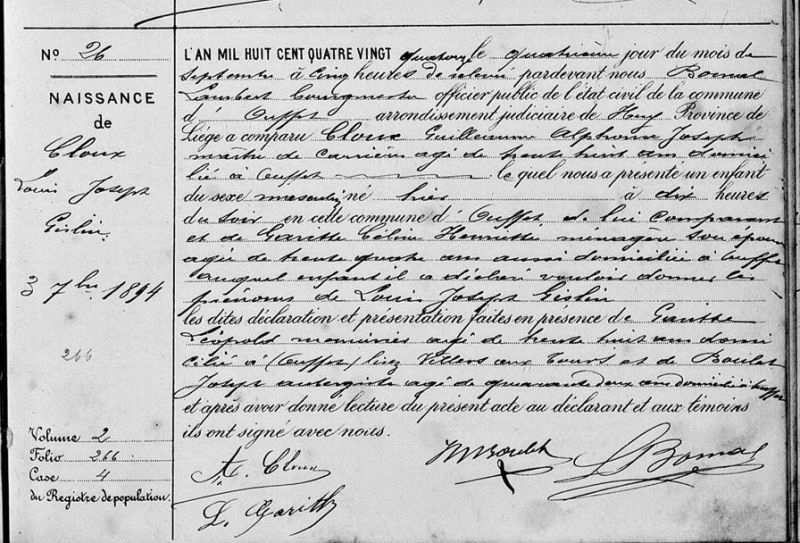 N° 26
NAISSANCE
de
Cloux
Louis Joseph
Gislin.
3 7bre 1894
266
Volume 2
Folio 266
Case 4
du Registre de population.
L'AN MIL HUIT CENT QUATRE VINGT quatorze le quatrième jour du mois de
septembre à cinq heures de relevée pardevant nous Bomal
Lambert bourgmestre officier public de l'état civil de la commune
d' Ouffet arrondissement judiciaire de Huy Province de
Liége a comparu Cloux Guillaume Alphonse Joseph
maître de carrière agé de trente huit ans domici
lié à Ouffet le quel nous a présenté un enfant
du sexe masculin né hier à dix heures
du soir en cette commune d' Ouffet, de lui comparant
et de Garitte Céline Henriette ménagère son épouse
agée de trente quatre ans aussi domiciliée à Ouffet
auquel enfant il a déclaré vouloir donner les
prénoms de Louis Joseph Gislin
les dites déclaration et présentation faites en présence de Garitte
Léopold menuisier agé de trente huit ans domi
cilié à (Ouffet) liez Villers aux Tours et de Boulet
Joseph aubergiste agé de quarante deux ans domicilié à Ouffet
et après avoir donné lecture du présent acte au déclarant et aux témoins
ils ont signé avec nous.
A. Cloux
Boulet
L Bomal
L. Garitte